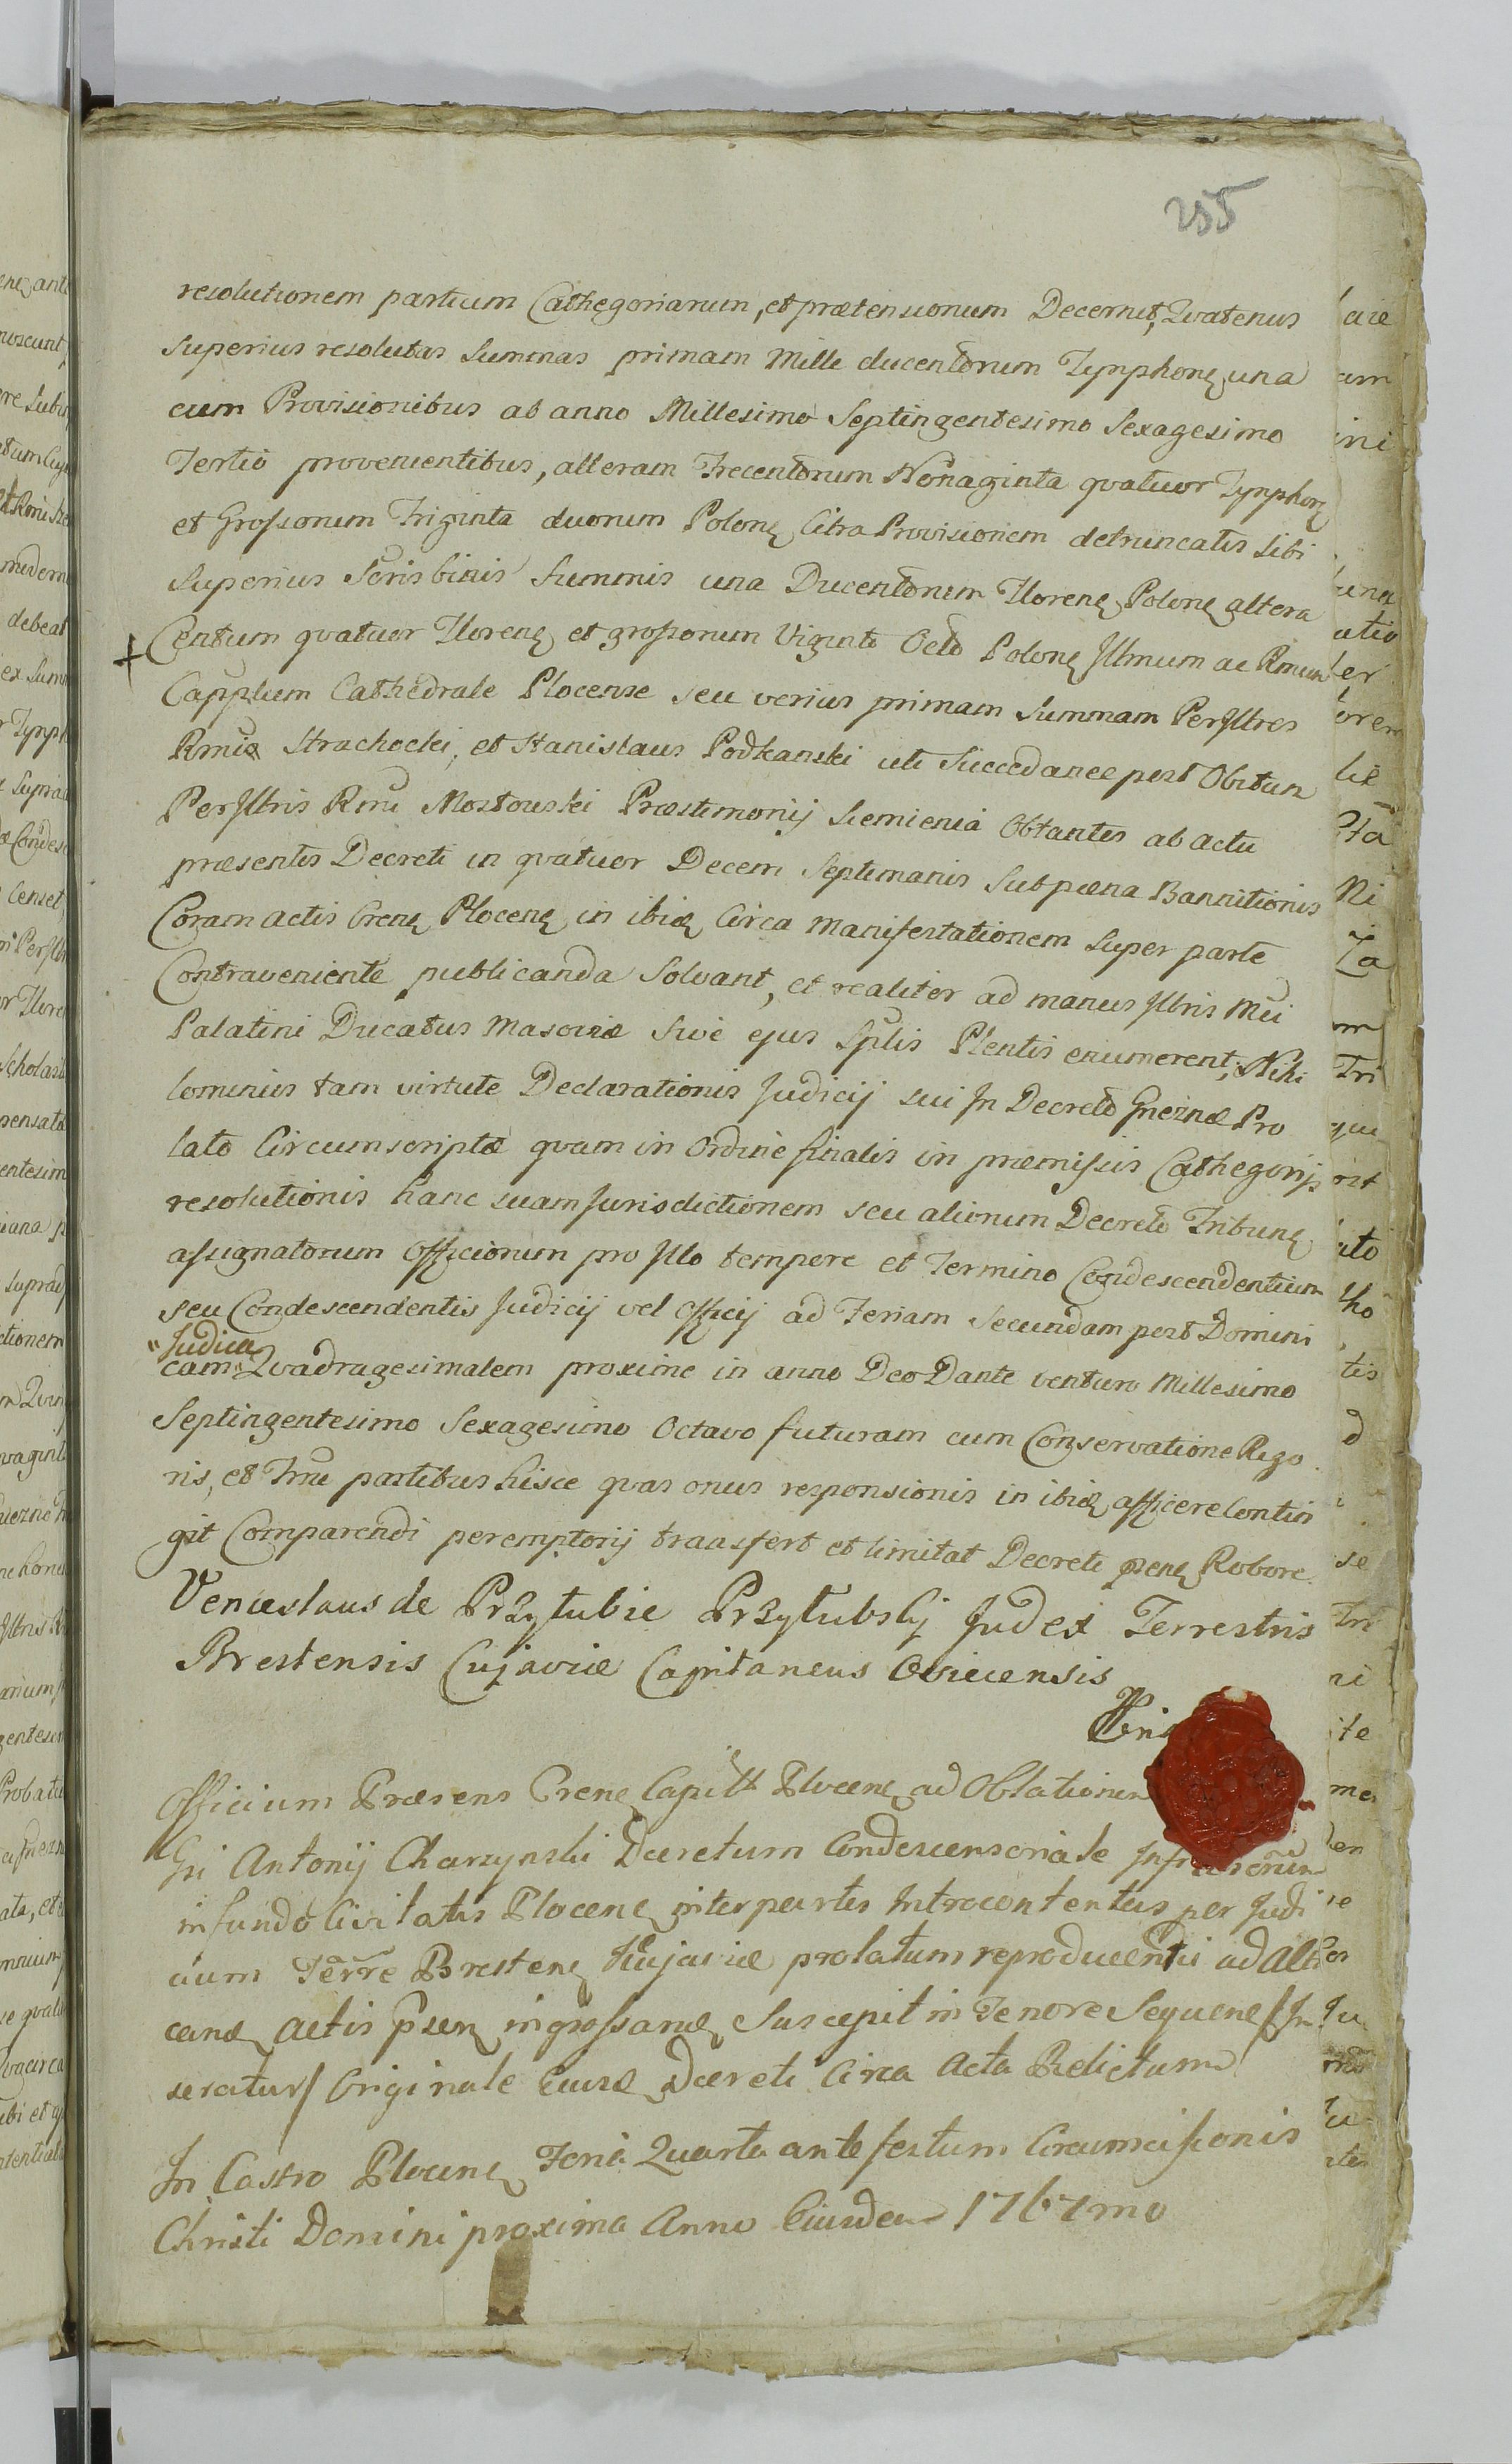 255
resolutionem partium Cathegoriarum, et prætensionum Decernit, Qvatenus
Superius resolutas Summas primam Mille ducentorum Tynphonę una
cum Provisionibus ab anno Millesimo Septingentesimo Sexagesimo
Tertio provenientibus, alteram Trecentorum Nonaginta qvatuor Tynphonę
et Grossorum Triginta duorum Polonę Citra Provisionem detruncatis Sibi
Superius binis Summis una Ducentorum Florenę Polonę altera
Centum qvatuor Florenę et grossorum Viginti Octo Polonę Illmum ac Rmum
Capplum Cathedrale Plocense seu verius primam Summam PerIllres
Strachocki, et Stanislaus Podkanski uti Succedanee post Obitum
PerIllris Rmi Mostowski Præstimonij Siemienia Obtantes ab actu
præsentis Decreti in qvatuor Decem Septimanis Sub pæna Bannitionis
Coram actis Crenę Plocenę in ibiq Circa Manifestationem Super parte
Contraveniente publicanda Solvant, et realiter ad manus Illris Mci
Palatini Ducatus Masoviæ Sive ejus Splis Plentis enumerent, Nihi
lominus tam virtute Declarationis Judicij sui In Decreto Gneznæ Pro
lato Circumscriptæ qvam in Ordine finalis in præmissis Cathegorijs
resolutionis hanc suam Jurisdictionem seu aliorum Decreto Tribunę
assignatorum Officiorum pro Illo tempore et Termino Condescendentium
seu Condescendentis Judicij vel Officij ad Feriam Secundam post Domini
"Judica
cam "Qvadragesimalem proxime in anno Deo Dante venturo Millesimo
Septingentesimo Sexagesimo Octavo futuram cum Conservatione Rigo
ris, et Tmi partibus hisce qvas onus responsionis in ibiq afficere Contin
git Comparendi peremptorij transfert et limitat Decreti Robore.
Venceslaus de Przyłubie Przyłubsky Judex Terrestris
Brestensis Cujaviæ Capitaneus
Officium Præsens Crenę Capitle Plocenę ad Oblationem
Gsi Antonij Charzynski Decretum Condescensoriale
in fundo Civitatis Plocenę inter partes Introcontentas per Judi
cium Terre Brestenę Kujaviæ prolatum reproducentis ad
actis ingrossandę Suscepit in Tenore Sequenę /In
seratur/ Originale Decreti Circa Acta Relictum
In Castro Plocenę Feria Quarta ante festum Circumcisionis
Christi Domini proxima Anno Eiusdem 1767mo